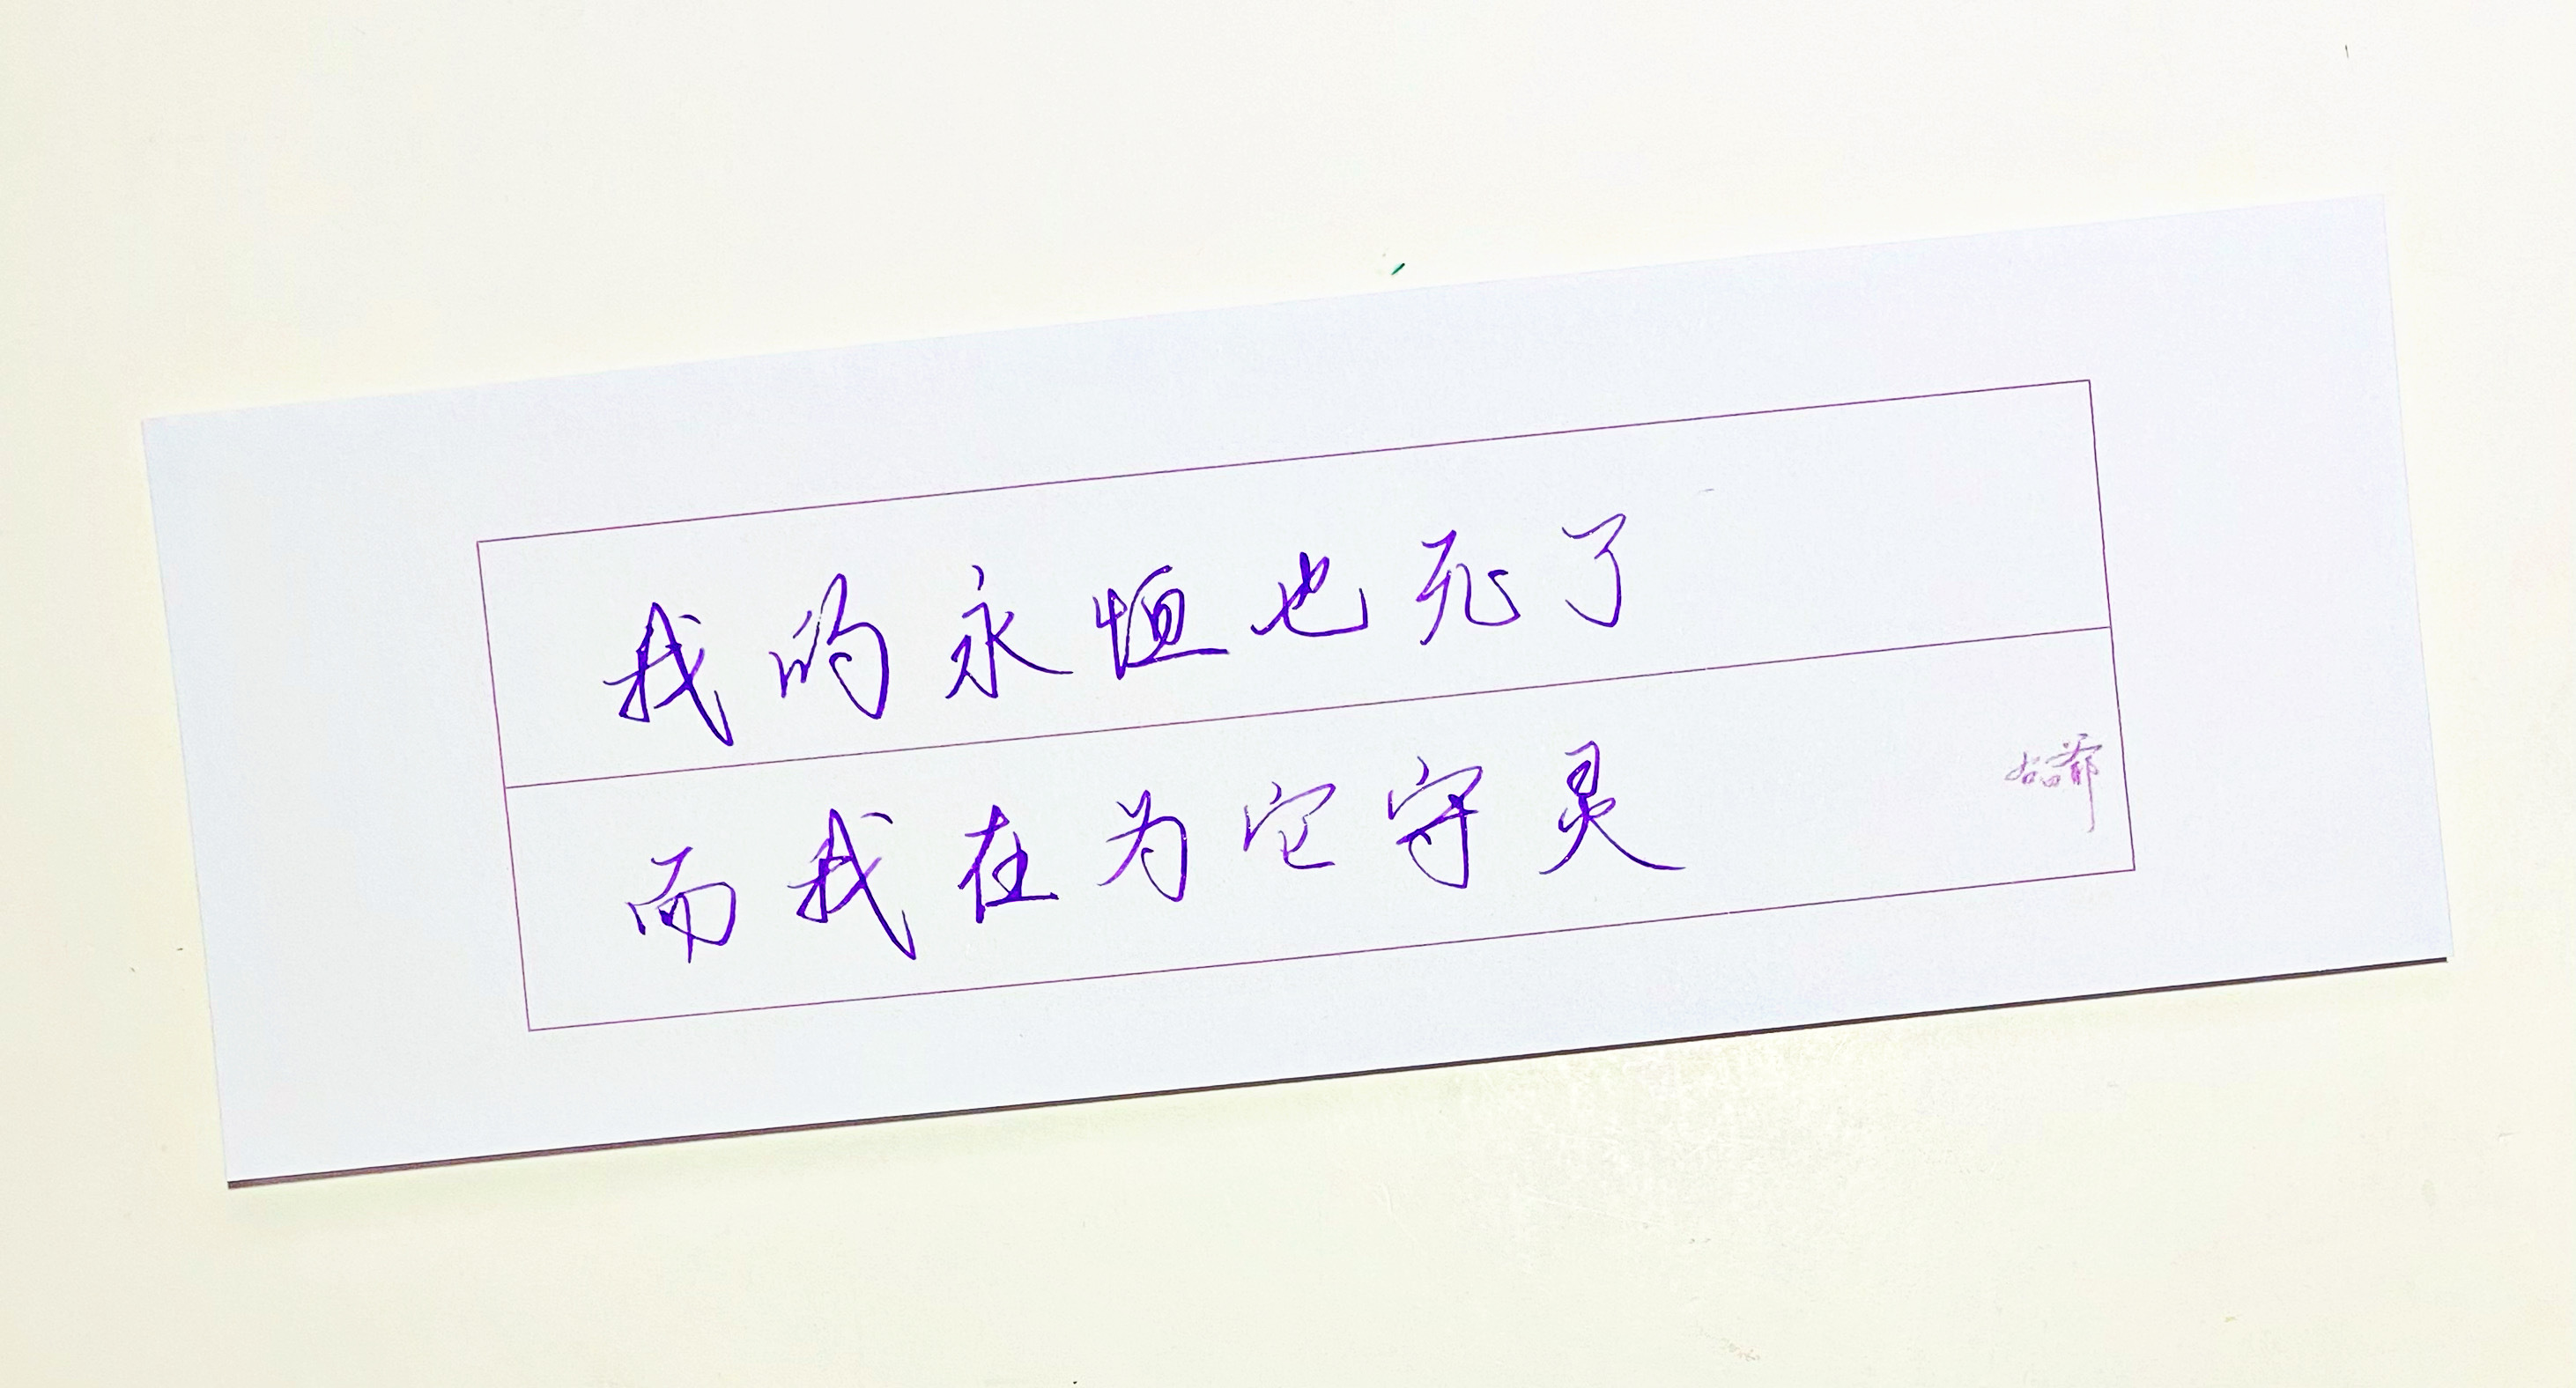 我的永恒也死了
而我在为它守灵